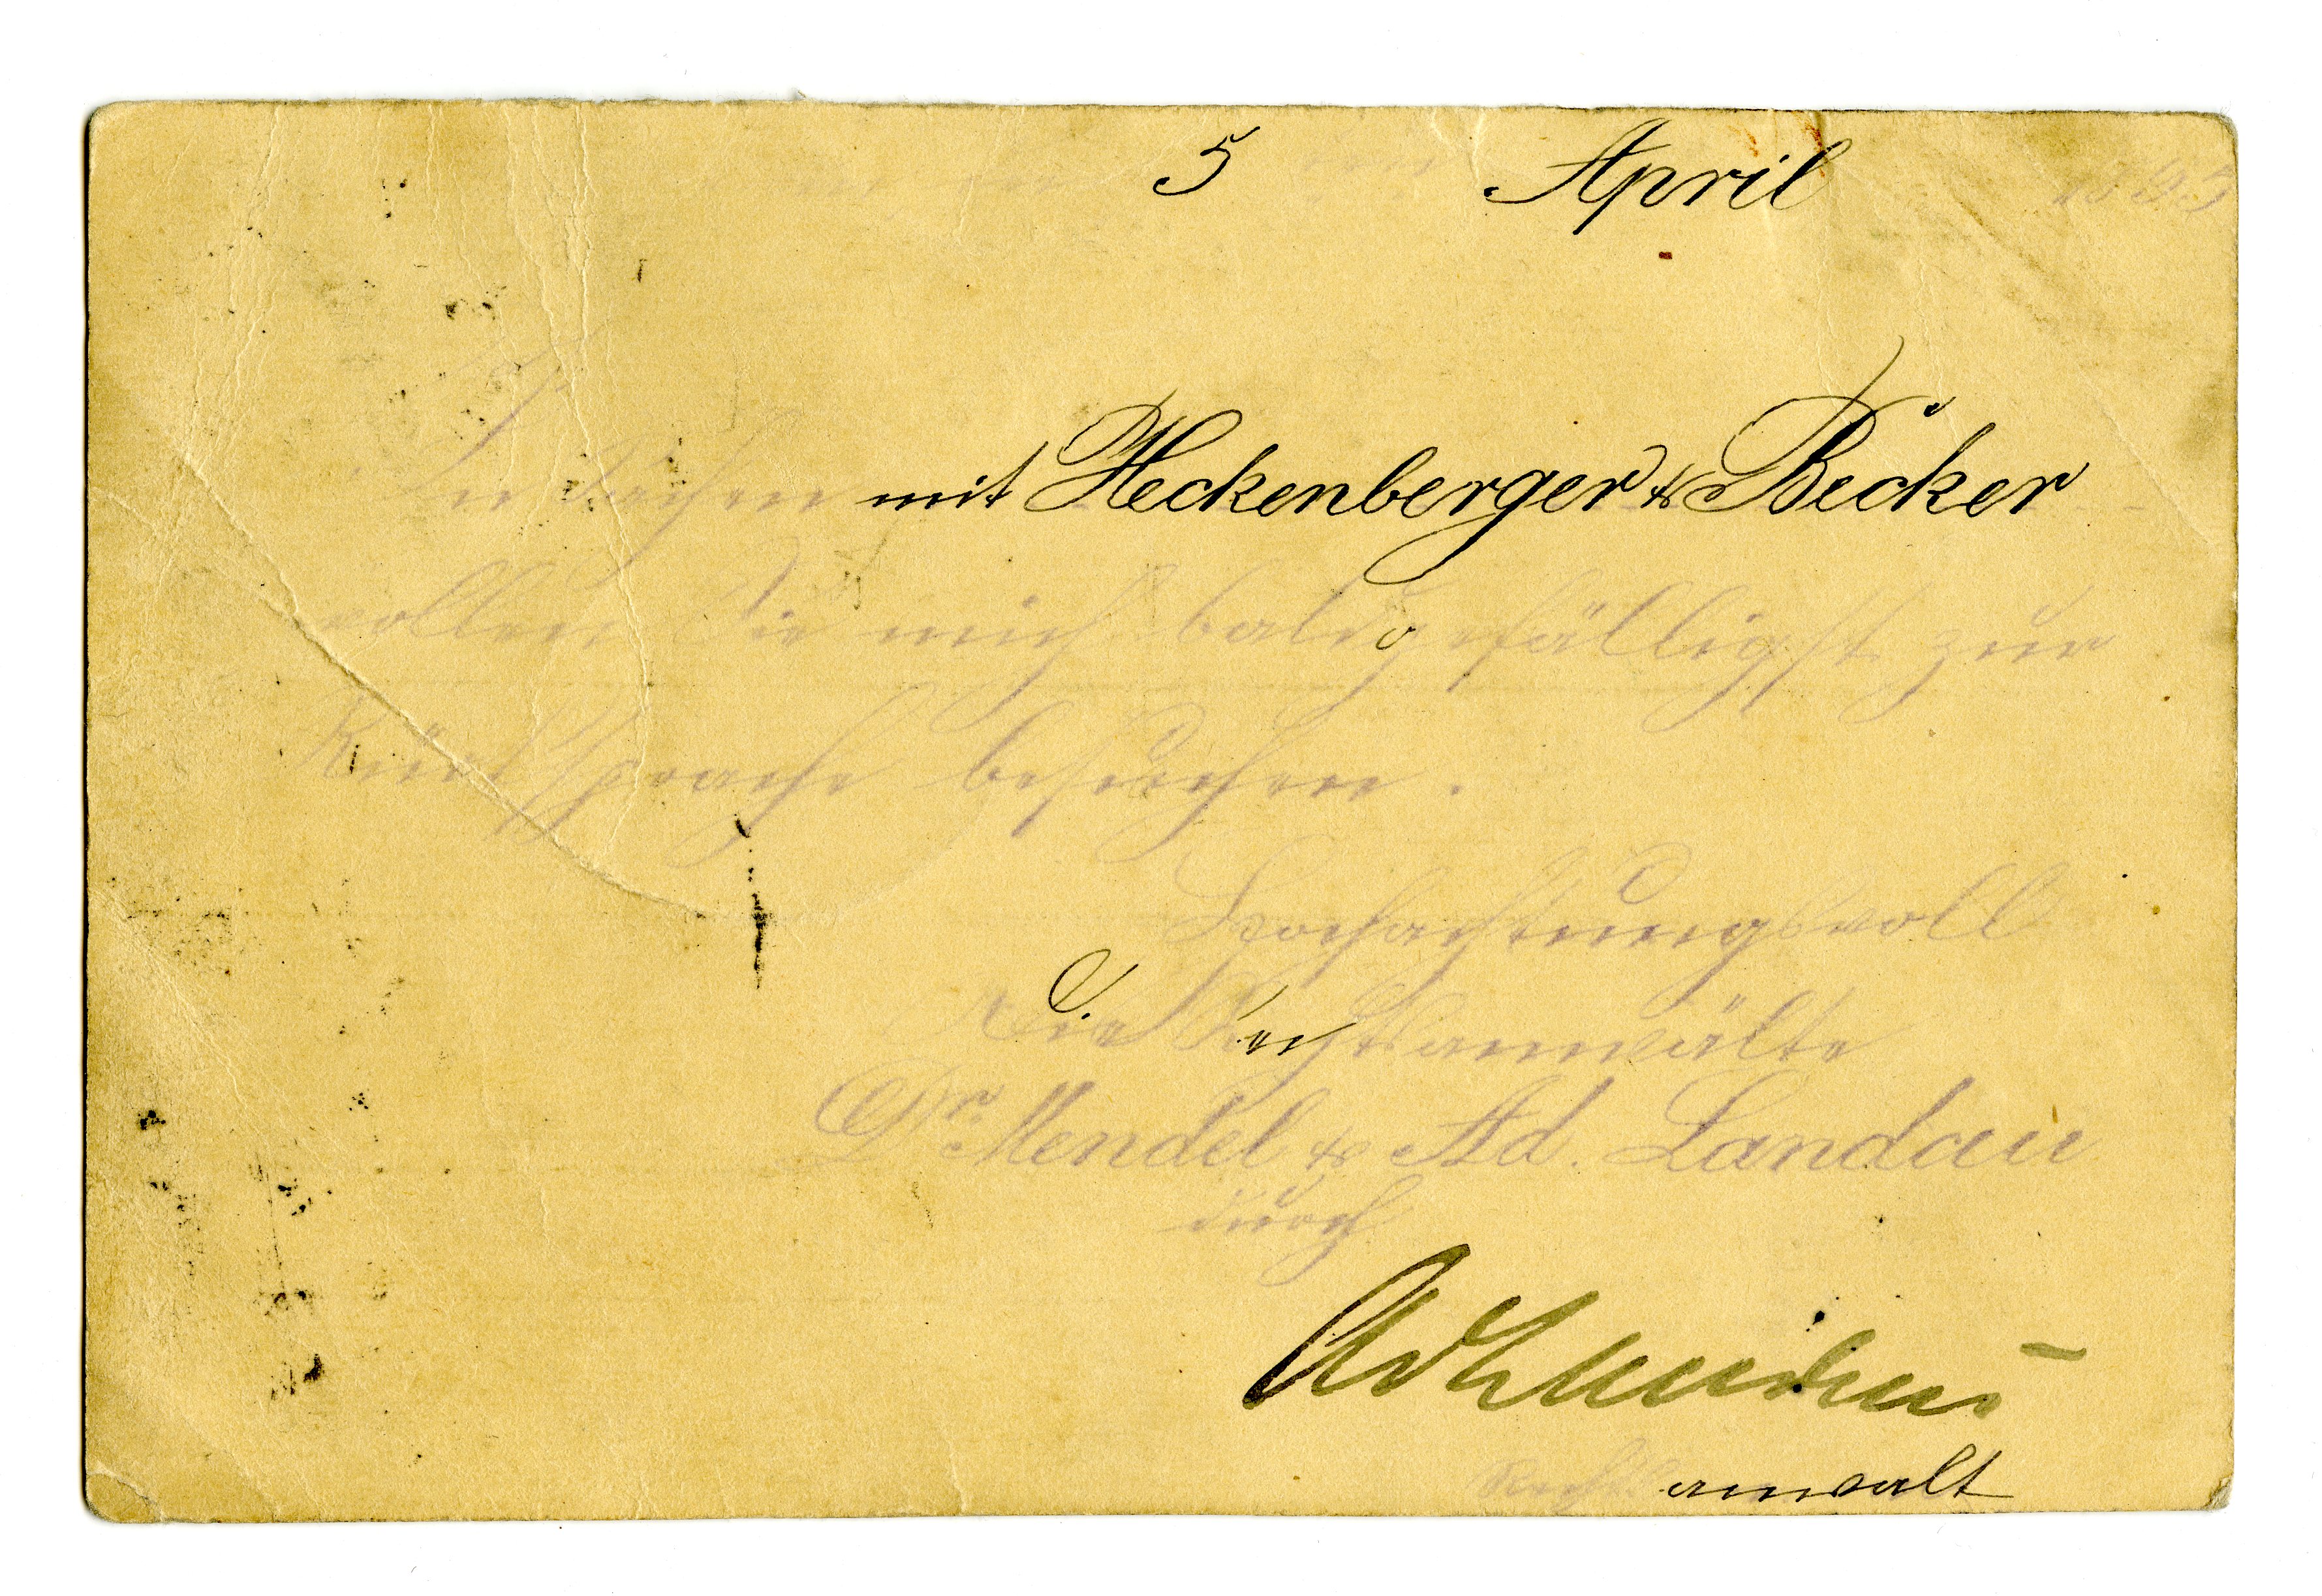 5 April
In Sachen mit Heckenberger & Becker
wollen Sie mich baldgefälligst zur
Rücksprache besuchen.
Hochachtungsvoll
Die Rechtsanwälte
Dr. Mendel & Ad. Landau
durch
Rechtsanwalt